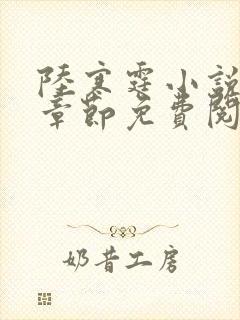 陸寒霆小說
章節免費閱
奶昔工房